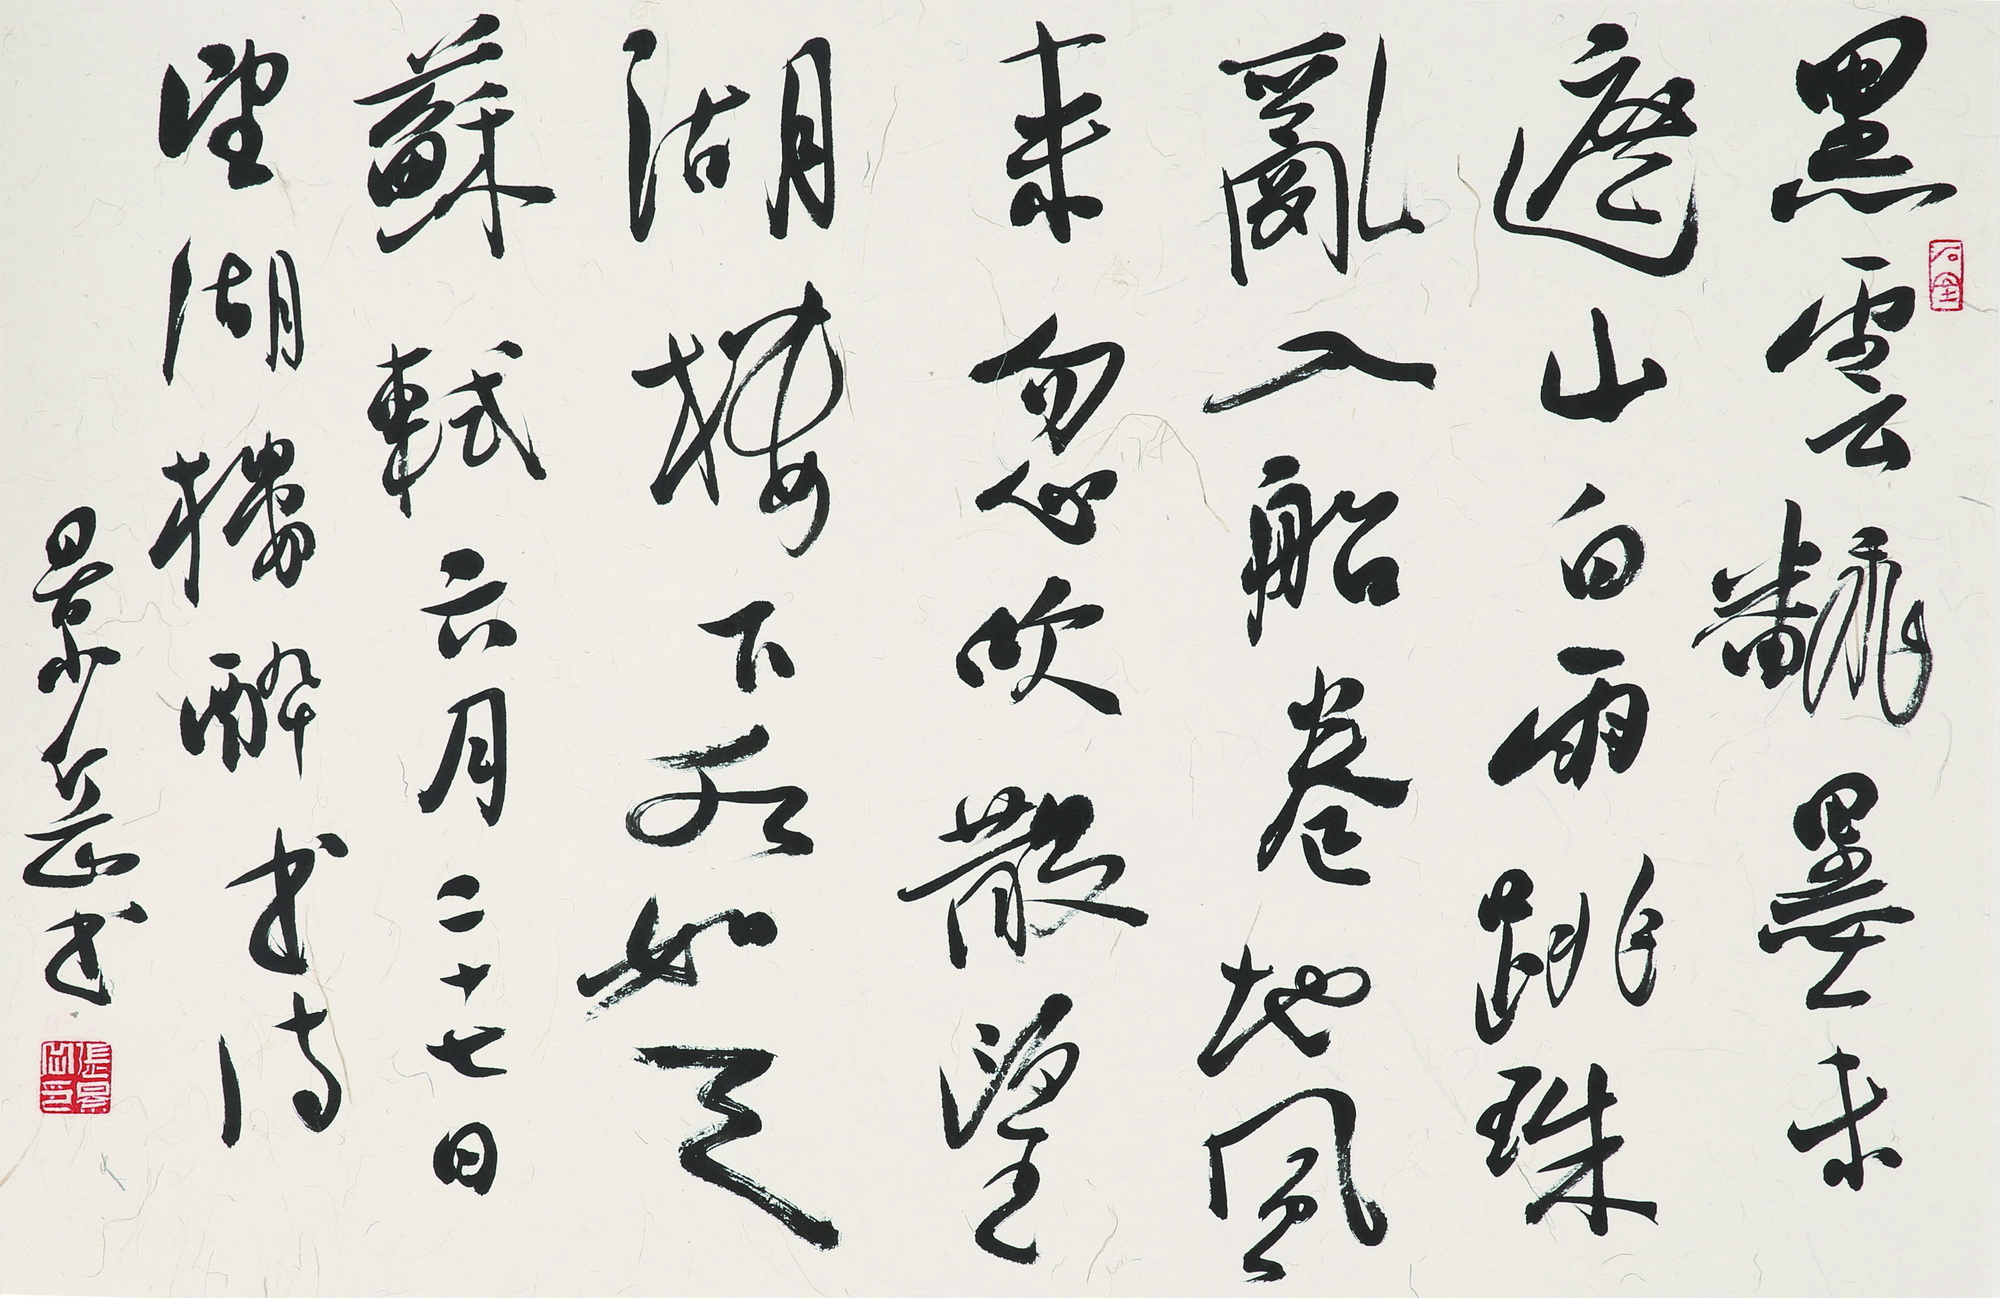 黑雲飜墨未
遮山白雨跳珠
亂入船卷地風
来忽吹散望
湖楼下水如天
蘇軾六月二十七日
望湖樓醉书诗
景岳书